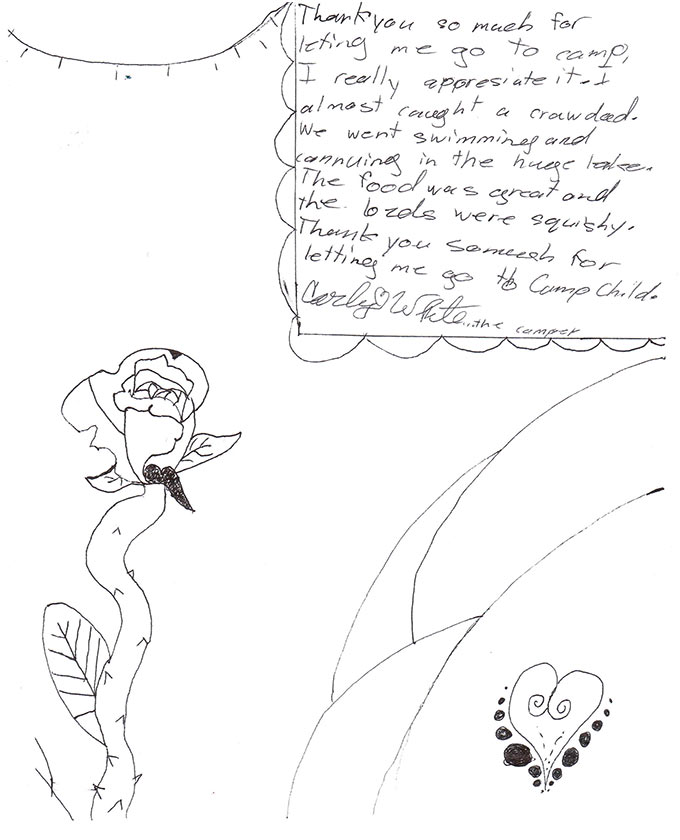 Thank you so much for
leting me go to camp,
I really appresiate it. I
almost caught a crawdad.
We went swimming and
cannuing in the huge lake.
The food was great and
the bzds were squishy.
Thank you somuch for
letting me go to Camp Child.
Carly White
...the camper